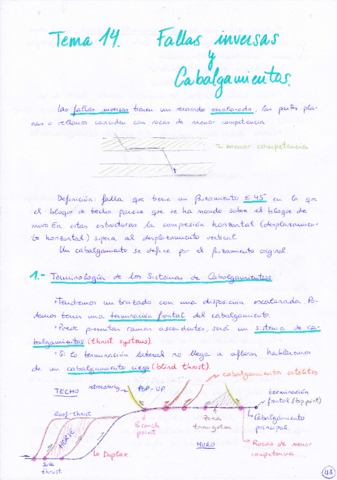 Tema 14. Fallas inversas
y
Cabalgamientos.
Las fallas inversas tienen un recorrido escalonado, las partes pla-
nas o rellanos coinciden con rocas de menor competencia.
menor competencia
Definición: falla que tiene un buzamiento ≤ 45° en la que
el bloque de techo parece que se ha movido sobre el bloque de
muro. En estas estructuras la compresión horizontal (desplazamien-
to horizontal) supera al desplazamiento vertical.
Un cabalgamiento se define por el buzamiento original.
1.- Terminología de los Sistemas de Cabalgamientos
· Tendremos un trazado con una disposición escalonada. Po-
demos tener una terminación frontal del cabalgamiento.
· Puede presentar ramas ascendentes, será un sistema de ca-
balgamientos (thrust systems).
· Si la terminación lateral no llega a aflorar hablaremos
de un cabalgamiento ciego (blind thrust).
cabalgamiento satélites
TECHO
POP-UP
terminación
frontal (tip point)
Roof-thrust
HORSE
Branch
point
Zona
triangular
Cabalgamiento
principal.
MURO
Rocas de menor
competencia
thrust
Duplex